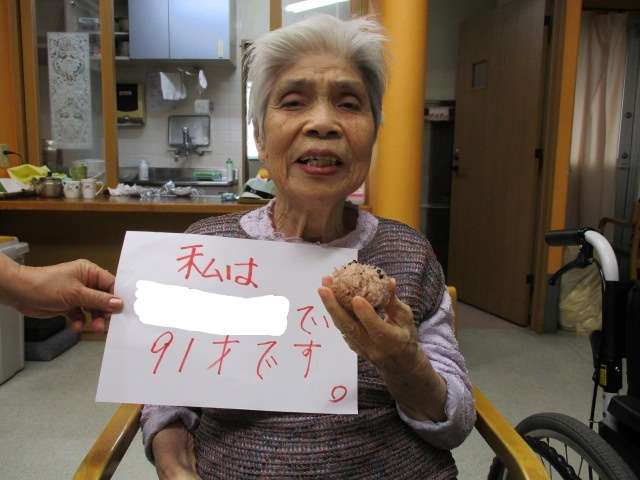 私は
で
91才です。